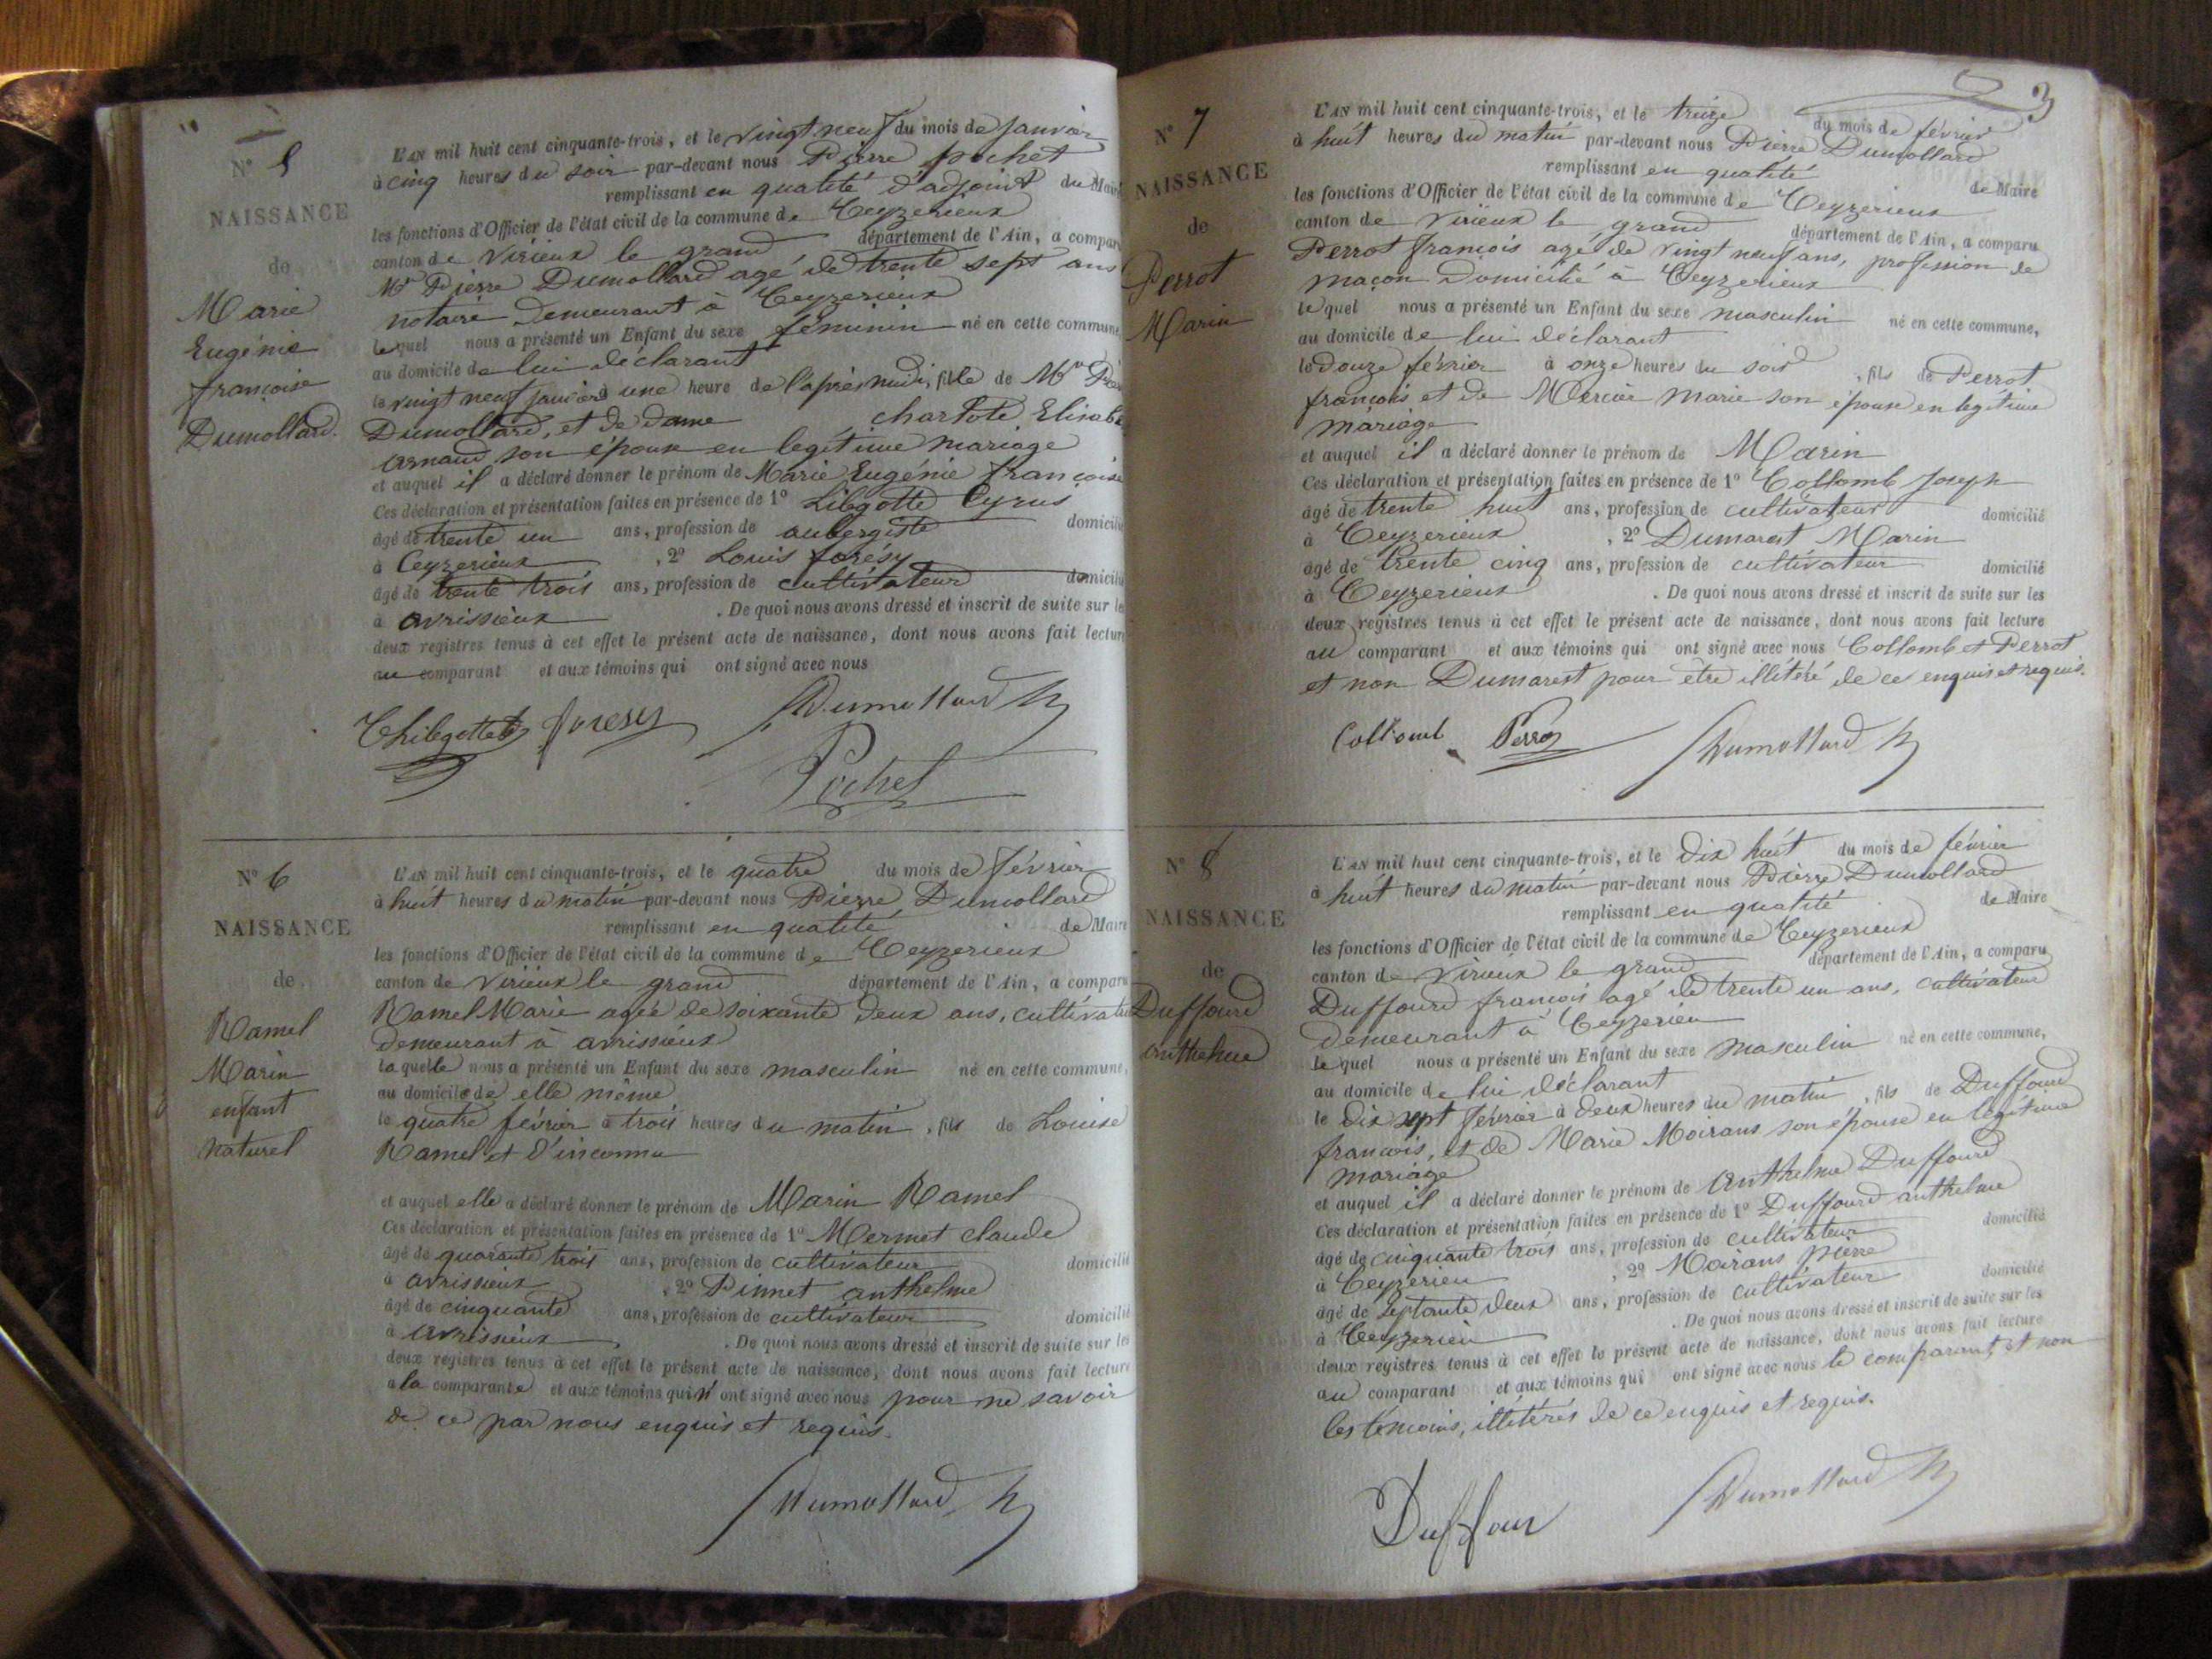 N° 5
NAISSANCE
de
Marie
Eugénie
françoise
Dumollard.
L'AN mil huit cent cinquante-trois, et le vingt neuf du mois de Janvier
à cinq heures du soir par-devant nous Pierre pochet
remplissant en qualité d'adjoint du Maire
les fonctions d'Officier de l'état civil de la commune de Ceyzerieux
canton de Virieux le grand département de l'Ain, a comparu
Mr Pierre Dumollard agé de trente sept ans
notaire demeurant à Ceyzerieux
lequel nous a présenté un Enfant du sexe féminin né en cette commune,
au domicile de lui déclarant
le vingt neuf janvier à une heure de l'après midi, fille de Mr
Dumollard, et de dame charlote
arnaud son épouse en legitime mariage
et auquel il a déclaré donner le prénom de Marie Eugénie françoise
Ces déclaration et présentation faites en présence de 1° Libgotte Cyrus
âgé de trente un ans, profession de aubergiste domicilié
à Ceyzerieux , 2° Louis forésy
âgé de trente trois ans, profession de cultivateur domicilié
à avrissieux . De quoi nous avons dressé et inscrit de suite sur les
deux registres tenus à cet effet le présent acte de naissance, dont nous avons fait lecture
au comparant et aux témoins qui ont signé avec nous
foresy Dumollard
Pochet
N° 6
NAISSANCE
de
Ramel
Marin
enfant
naturel
L'AN mil huit cent cinquante-trois, et le quatre du mois de février
à huit heures du matin par-devant nous Pierre Dumollard
remplissant en qualité de Maire
les fonctions d'Officier de l'état civil de la commune de Ceyzerieux
canton de Virieux le grand département de l'Ain, a comparu
Ramel Marie agée de soixante deux ans, cultivateur
demeurant à avrissieux
laquelle nous a présenté un Enfant du sexe masculin né en cette commune,
au domicile de elle même
le quatre février à trois heures du matin, fils de Louise
Ramel et d'inconnu
et auquel elle a déclaré donner le prénom de Marin Ramel
Ces déclaration et présentation faites en présence de 1° Mermet claude
âgé de quarante trois ans, profession de cultivateur domicilié
à avrissieux , 2° Pinnet anthelme
âgé de cinquante ans, profession de cultivateur domicilié
à avrissieux . De quoi nous avons dressé et inscrit de suite sur les
deux registres tenus à cet effet le présent acte de naissance, dont nous avons fait lecture
à la comparante et aux témoins qui n'ont signé avec nous pour ne savoir
de ce par nous enquis et requis.
Dumollard
3
N° 7
NAISSANCE
de
Perrot
Marin
L'AN mil huit cent cinquante-trois, et le treize du mois de février
à huit heures du matin par-devant nous Pierre Dumollard
remplissant en qualité de Maire
les fonctions d'Officier de l'état civil de la commune de Ceyzerieux
canton de Virieux le grand département de l'Ain, a comparu
Perrot françois agé de vingt neuf ans, profession de
maçon domicilié à Ceyzerieux
lequel nous a présenté un Enfant du sexe masculin né en cette commune,
au domicile de lui déclarant
le douze février à onze heures du soir , fils de Perrot
françois et de Mercier marie son épouse en legitime
mariage
et auquel il a déclaré donner le prénom de Marin
Ces déclaration et présentation faites en présence de 1° Collomb Joseph
âgé de trente huit ans, profession de cultivateur domicilié
à Ceyzerieux , 2° Dumarest Marin
âgé de trente cinq ans, profession de cultivateur domicilié
à Ceyzerieux . De quoi nous avons dressé et inscrit de suite sur les
deux registres tenus à cet effet le présent acte de naissance, dont nous avons fait lecture
au comparant et aux témoins qui ont signé avec nous Collomb et Perrot
et non Dumarest pour être illétéré de ce enquis et requis.
Collomb Perrot Dumollard
N° 8
NAISSANCE
de
Duffourd
anthelme
L'AN mil huit cent cinquante-trois, et le dix huit du mois de février
à huit heures du matin par-devant nous Pierre Dumollard
remplissant en qualité de Maire
les fonctions d'Officier de l'état civil de la commune de Ceyzerieux
canton de Virieux le grand département de l'Ain, a comparu
Duffourd françois agé de trente un ans, cultivateur
demeurant à Ceyzerieu
lequel nous a présenté un Enfant du sexe masculin né en cette commune,
au domicile de lui déclarant
le dix sept février à deux heures du matin , fils de Duffourd
françois, et de Marie Moirans son épouse en légitime
mariage
et auquel il a déclaré donner le prénom de anthelme Duffourd
Ces déclaration et présentation faites en présence de 1° Duffourd anthelme
âgé de cinquante trois ans, profession de cultivateur domicilié
à Ceyzerieu , 2° Moirans pierre
âgé de septante deux ans, profession de cultivateur domicilié
à Ceyzerieu . De quoi nous avons dressé et inscrit de suite sur les
deux registres tenus à cet effet le présent acte de naissance, dont nous avons fait lecture
au comparant et aux témoins qui ont signé avec nous le comparant et non
les témoins, illétérés de ce enquis et requis.
Duffour Dumollard